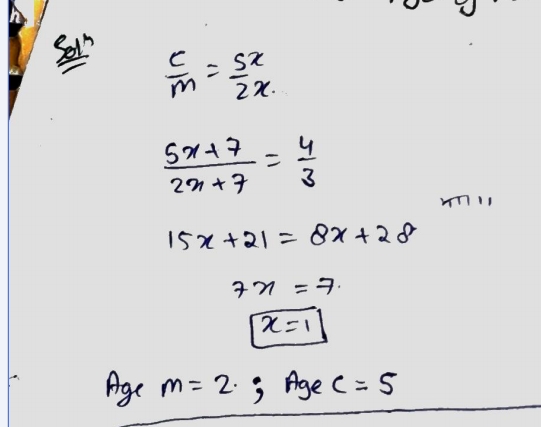 Age of
Solⁿ
C/m = 5x/2x.
(5x+7)/(2x+7) = 4/3
15x+21 = 8x+28
7x = 7.
x=1
Age m = 2. ; Age C = 5